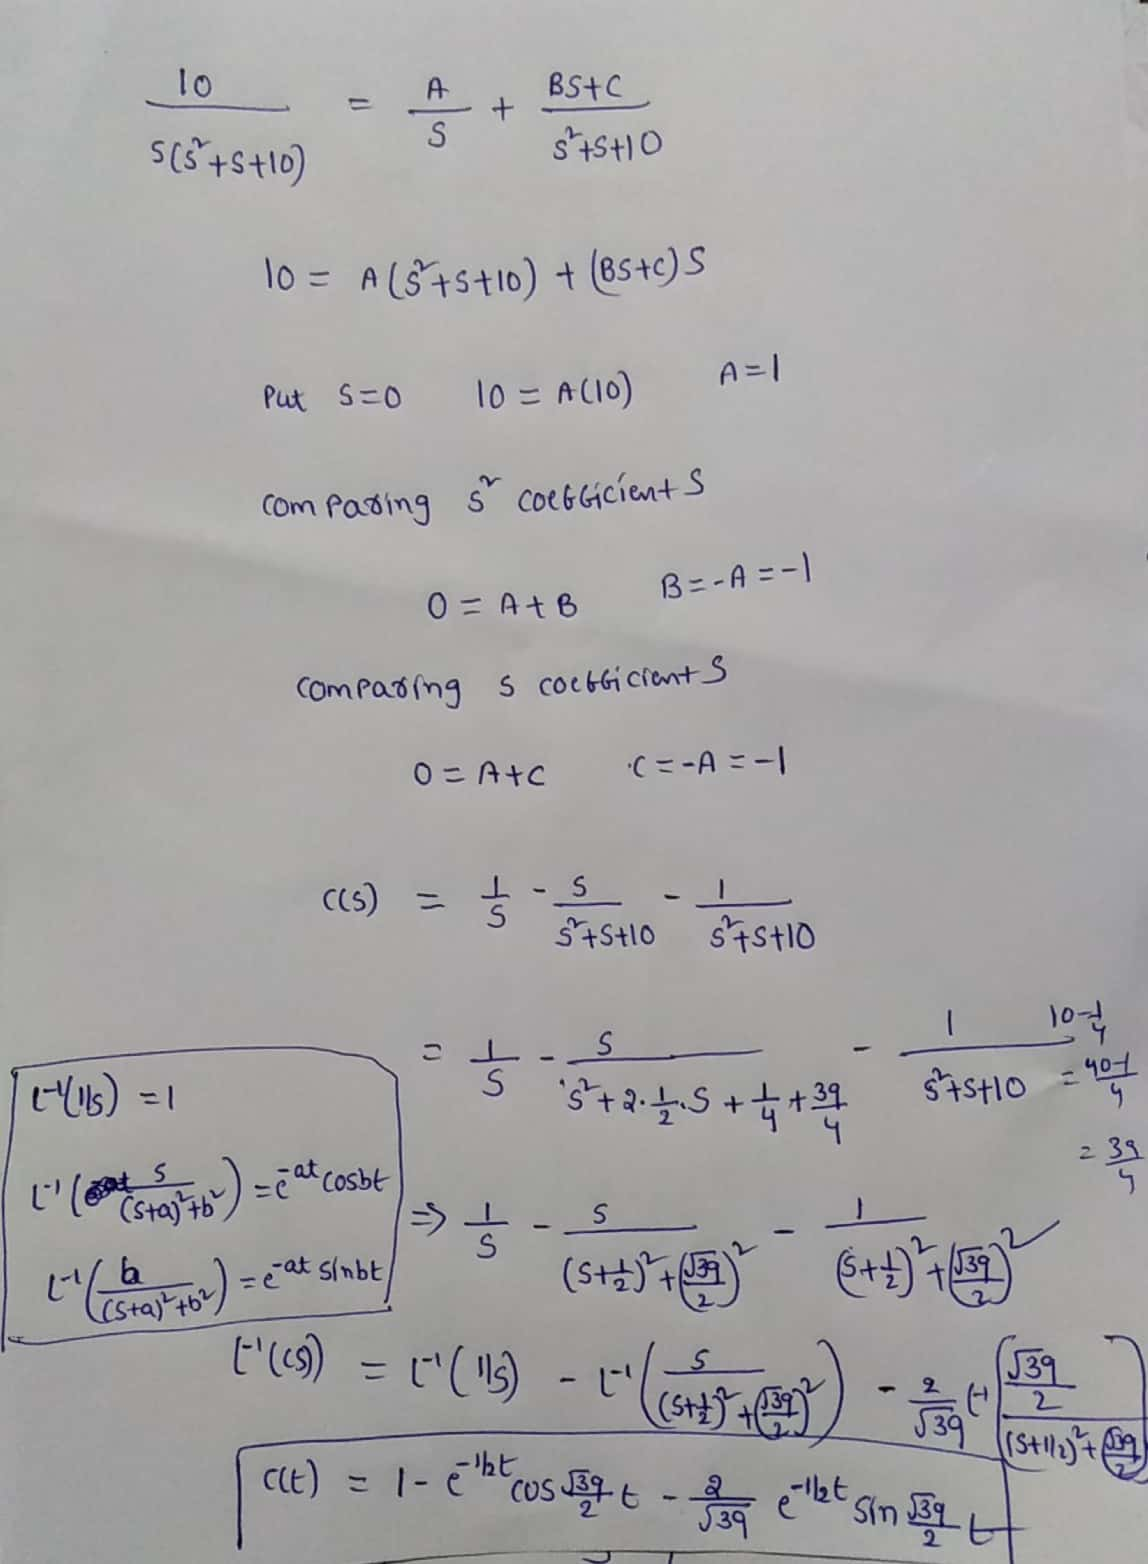 10/(S(S²+S+10)) = A/S + (BS+C)/(S²+S+10)
10 = A(S²+S+10) + (BS+C)S
Put S=0 10 = A(10) A=1
comparing S² coefficients
0 = A+B B=-A=-1
comparing S coefficients
0 = A+C C=-A=-1
C(S) = 1/S - S/(S²+S+10) - 1/(S²+S+10)
= 1/S - S/(S²+2·1/2·S+1/4+39/4) - 1/(S²+S+10)
10-1/4
= 40-1/4
= 39/4
L⁻¹(1/S) = 1
L⁻¹(S/((S+a)²+b²)) = e^-at cosbt
L⁻¹(b/((S+a)²+b²)) = e^-at sinbt
⇒ 1/S - S/((S+1/2)²+(√39/2)²) - 1/((S+1/2)²+(√39/2)²)
L⁻¹(C(S)) = L⁻¹(1/S) - L⁻¹(S/((S+1/2)²+(√39/2)²)) - 2/√39 L⁻¹((√39/2)/((S+1/2)²+(√39/2)
C(t) = 1 - e^-1/2t cos √39/2 t - 2/√39 e^-1/2t sin √39/2 t